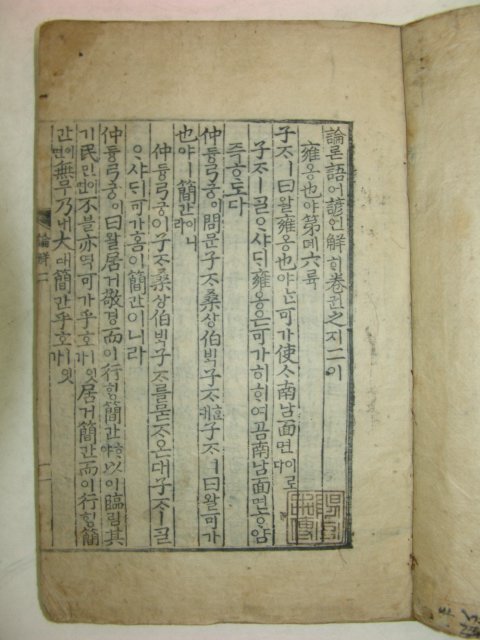 論론語어諺언解ᄒᆡ卷권之지二이
雍옹也야第뎨六륙
子ᄌᆞㅣ曰왈雍옹也야ᄂᆞᆫ可가使ᄉᆞ南남面면이로다
子ᄌᆞㅣᄀᆞᆯᄋᆞ샤ᄃᆡ雍옹은可가히ᄒᆞ여곰南남面면ᄒᆞ얌
즉ᄒᆞ도다
仲듕弓궁이問문子ᄌᆞ桑상伯ᄇᆡᆨ子ᄌᆞᄒᆞᆫ대子ᄌᆞㅣ曰왈可가
也야ㅣ簡간이니라
仲듕弓궁이子ᄌᆞ桑상伯ᄇᆡᆨ子ᄌᆞ를묻ᄌᆞ온대子ᄌᆞㅣᄀᆞᆯ
ᄋᆞ샤ᄃᆡ可가홈이簡간이니라
仲듕弓궁이曰왈居거敬경而이行ᄒᆡᆼ簡간ᄒᆞ야以이臨림其
기民민이면不블亦역可가乎호잇가居거簡간而이行ᄒᆡᆼ簡
간이면無무乃내大대簡간乎호잇가
論解二